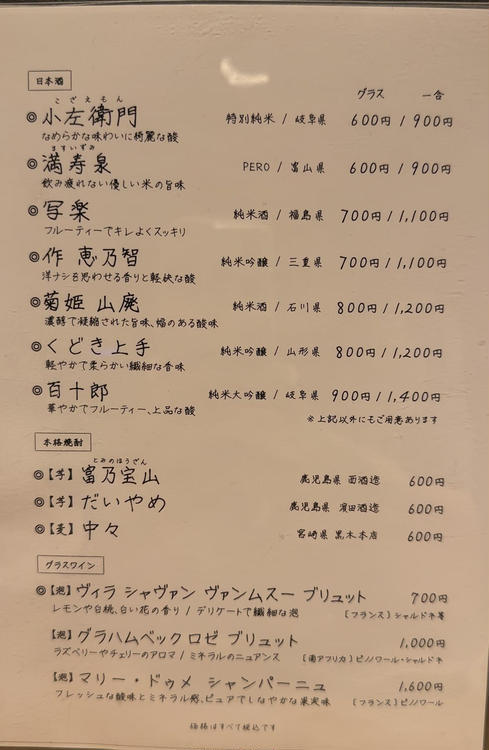 日本酒
グラス 一合
こざえもん
◎小左衛門 特別純米 / 岐阜県 600円 / 900円
なめらかな味わいに綺麗な酸
ますいずみ
◎満寿泉 PERO / 富山県 600円 / 900円
飲み疲れない優しい米の旨味
◎写楽 純米酒 / 福島県 700円 / 1,100円
フルーティーでキレよくスッキリ
◎作 恵乃智 純米吟醸 / 三重県 700円 / 1,100円
洋ナシを思わせる香りと軽快な酸
◎菊姫 山廃 純米酒 / 石川県 800円 / 1,200円
濃醇で凝縮された旨味、幅のある酸味
◎くどき上手 純米吟醸 / 山形県 800円 / 1,200円
軽やかで柔らかい繊細な香味
◎百十郎 純米大吟醸 / 岐阜県 900円 / 1,400円
華やかでフルーティー、上品な酸
※上記以外にもご用意あります
本格焼酎
とみのほうざん
◎【芋】富乃宝山 鹿児島県 西酒造 600円
◎【芋】だいやめ 鹿児島県 濱田酒造 600円
◎【麦】中々 宮崎県 黒木本店 600円
グラスワイン
◎【泡】ヴィラ シャヴァン ヴァンムスー ブリュット 700円
レモンや白桃、白い花の香り / デリケートで繊細な泡 [フランス] シャルドネ等
【泡】グラハムベック ロゼ ブリュット 1,000円
ラズベリーやチェリーのアロマ / ミネラルのニュアンス [南アフリカ] ピノノワール・シャルドネ
【泡】マリー・ドゥメ シャンパーニュ 1,600円
フレッシュな酸味とミネラル感、ピュアでしなやかな果実味 [フランス] ピノノワール
価格はすべて税込です